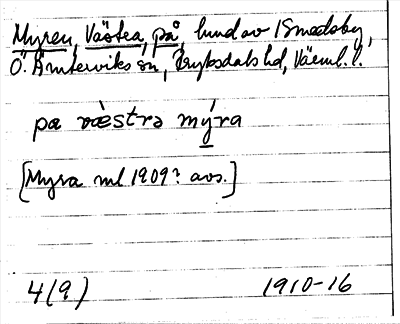 Myren, Västra, på, hmd av Smedsby,
Ö. Ämterviks sn, Fryksdals hd, Värml. l.
pa væstrə mýra
[Myra ml 1909? avs.]
4(9) 1910-16